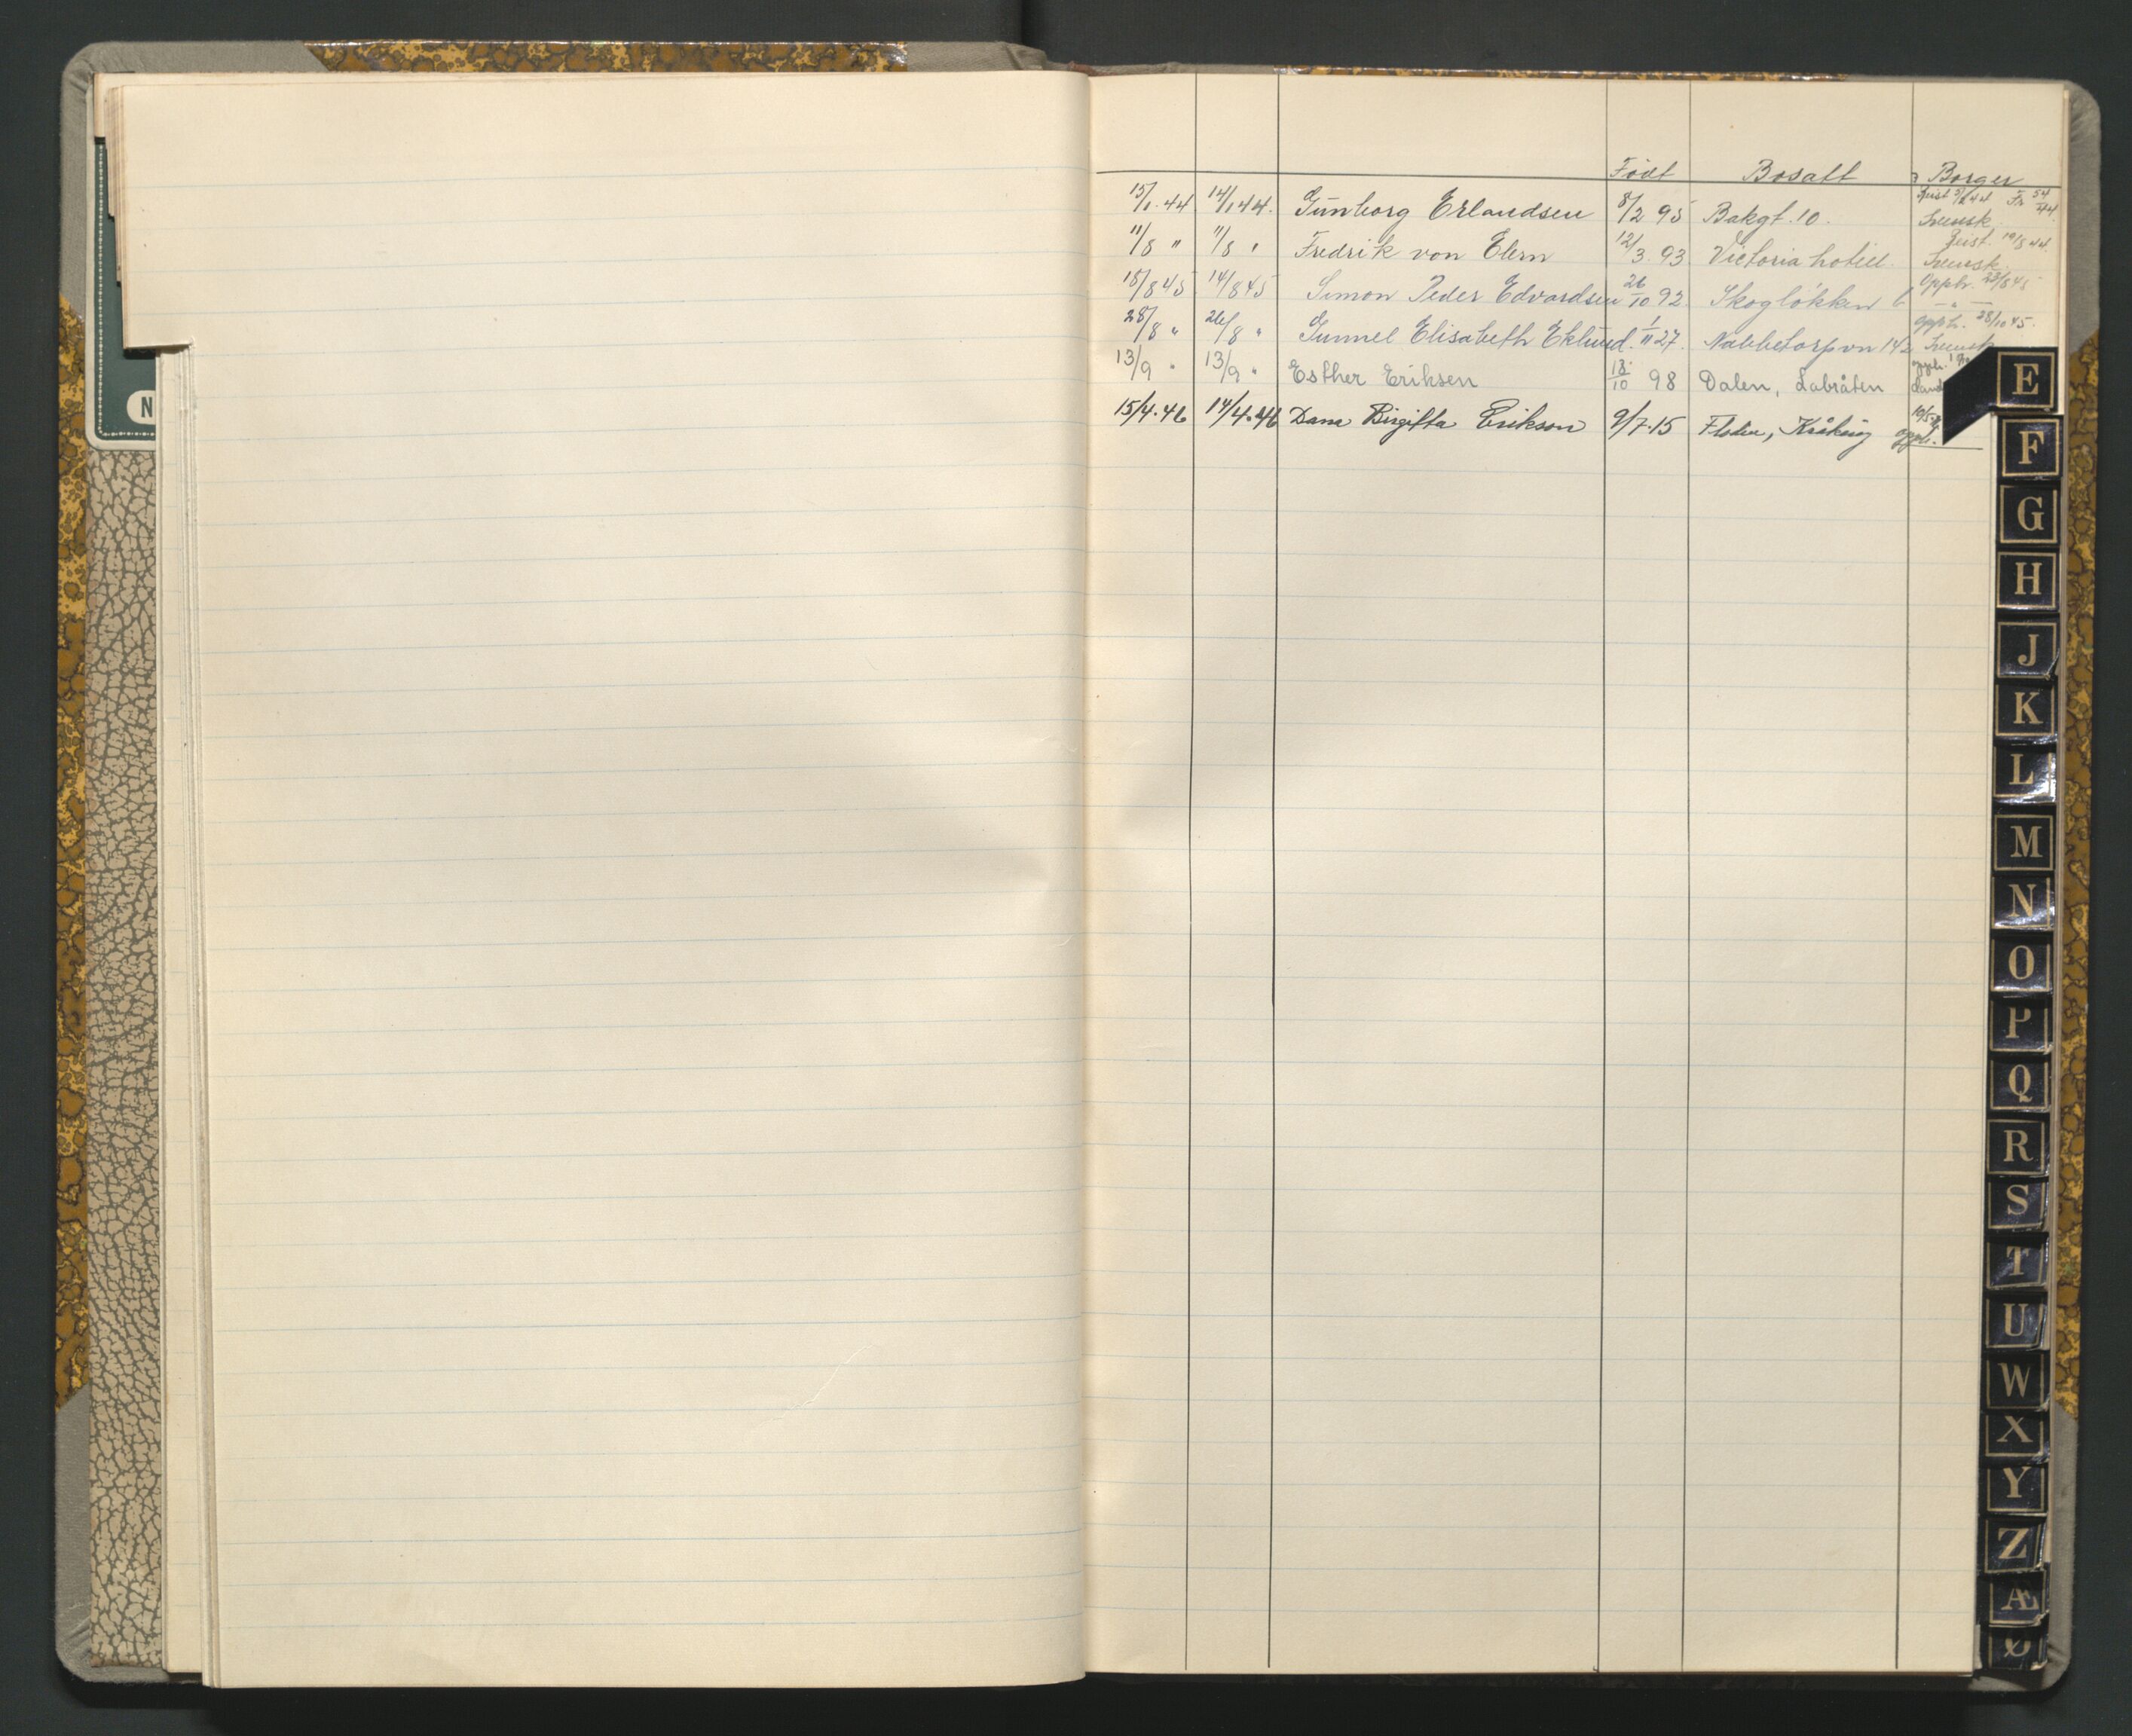 Født Bosatt Borger
15/1.44 14/1 44. Gunborg Erlandsen 8/2 95 Bakgt. 10. Svensk Reist 44 Fr 54/44
11/8 " 11/8 " Fredrik von Elern 12/3. 93 Victoria hotell. Svensk. Reist. 19/8 44.
18/8 45 14/8 45 Simon Peder Edvardsen 26/10 92 Skogløkken 6 — " — Opph. 23/8 45
28/8 " 26/8 " Gunnel Elisabeth Eklund. 1/11 27. Nabbetorpvn 142 Svensk Opph. 28/10 45.
13/9 " 13/9 " Esther Eriksen 18/10 98 Dalen, Labråten opph.
15/4.46 14/4.46 Dana Birgitta Erikson 9/7.15 Kråkerøy opph.
N
E
F
G
H
J
K
L
M
N
O
P
Q
R
S
T
U
W
X
Y
Z
Æ
Ø